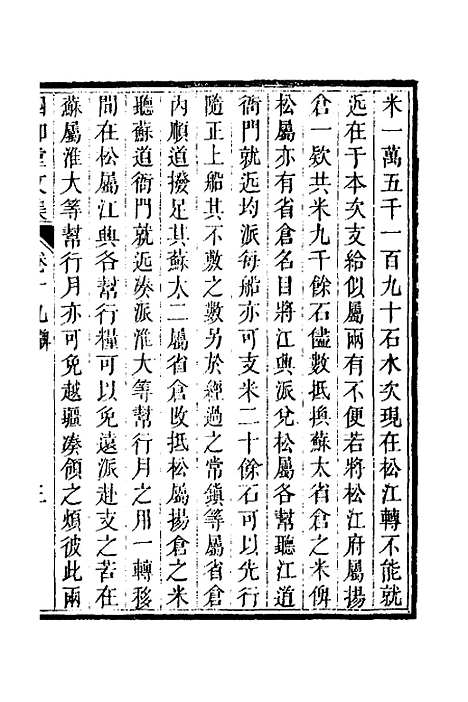 米一萬五千一百九十石水次現在松江轉不能就
近在于本次支給似屬兩有不便若將松江府屬揚
倉一欵共米九千餘石儘數抵換蘇太省倉之米俾
松屬亦有省倉名目將江興派兌松屬各幫聽江道
衙門就近均派每船亦可支米二十餘石可以先行
隨正上船其不敷之數另於經過之常鎮等屬省倉
內順道撥足其蘇太二屬省倉改抵松屬揚倉之米
聽蘇道衙門就近湊派淮大等幫行月之用一轉移
間在松屬江興各幫行糧可以免遠派赴支之苦在
蘇屬淮大等幫行月亦可免越驅湊領之煩彼此兩
卷十九
三